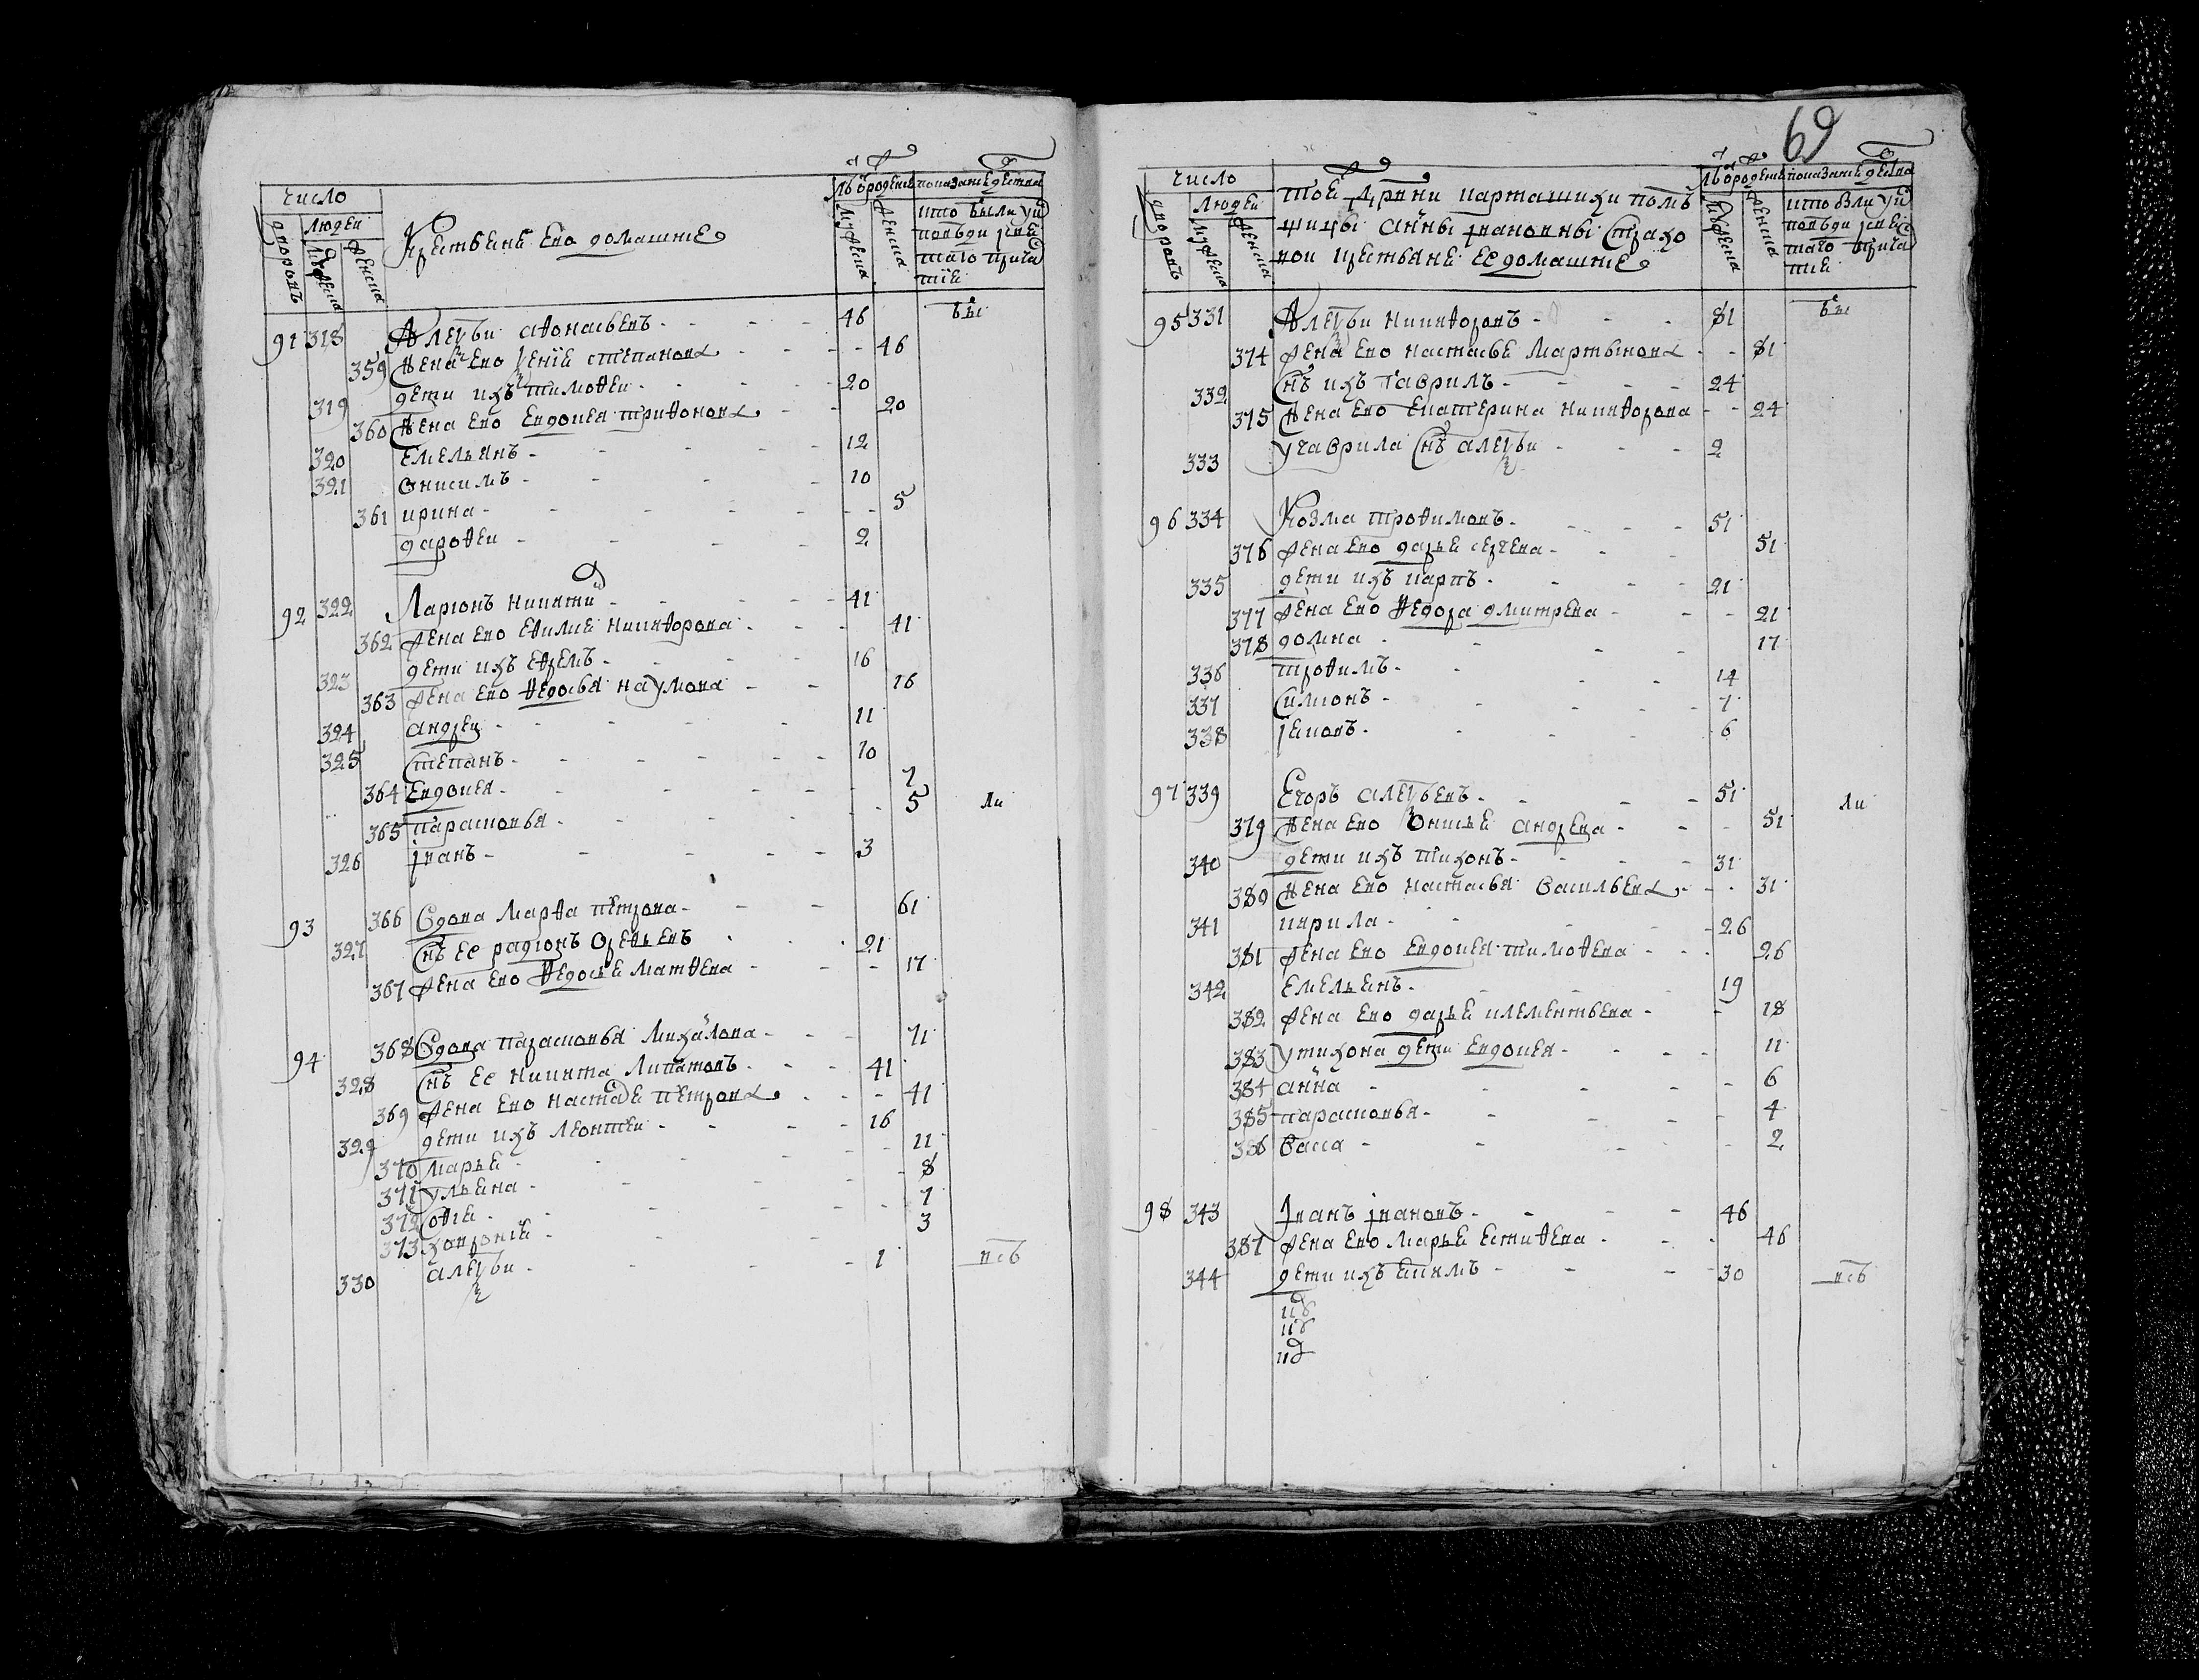 число
людеи
дворовъ
мужеска
женска
Крестьяне ево домашние
лѣ от рождения
мужеска
женска
показание действа
кто были у исповѣди и святаго причастие
91 318 Алеѯѣи афонасьевъ 46 бы
359 жена ево ѯения степанова 46
319 дети ихъ тимофеи 20
360 жена ево Евдокея трифонова 20
320 емельянъ 12
321 онисимъ 10
361 ирина 5
дарофеи 2
92 322 Ларионъ никитин 41
362 жена ево ефимия никифорова 41
323 дети ихъ ефремъ 16
363 жена ево федосья наумова 16
324 андреи 11
325 степанъ 10
364 Евдокея 7
365 парасковья 5 ли
326 иванъ 3
93 366 вдова марфа петрова 61
327 снъ ее радионъ арефьевъ 21
367 жена ево федосья матвева 17
94 368 вдова парасковья михаилова 71
328 снъ ее никита липатовъ 41
369 жена ево настасья петрова 41
329 дети ихъ леонтеи 16
370 марья 11
371 ульяна 8
372 софия 7
373 ховрония 3
330 алеѯѣи 1 всѣ
69
число
людеи
дворовъ
мужеска
женска
тои дрвни карташихи помѣ
щицы анны ивановны Страхо
вои крестьяне ее домашние
лѣ от рождения
мужеска
женска
показание действа
кто были у исповѣди и святаго причастие
95 331 Алеѯѣи никифоровъ 81 бы
374 жена ево настасья мартынова 81
332 снъ ихъ гаврилъ 24
375 жена ево екатерина никифорова 24
333 у гаврила снъ алеѯѣи 2
96 334 Козма трофимовъ 51
376 жена ево дарья сергева 51
335 дети ихъ карпъ 21
377 жена ево федора дмитрева 21
378 домна 17
336 трофимъ 14
337 симионъ 7
338 иаковъ 6
97 339 Егоръ алеѯѣевъ 51 ли
379 жена ево онисья андрева 51
340 дети ихъ тихонъ 31
380 жена ево настасья васильева 31
341 кирила 26
381 жена ево евдокея тимофева 26
342 емельянъ 19
382 жена ево дарья клементьева 18
383 у тихона дети евдокея 11
384 анна 6
385 парасковья 4
386 васа 2
98 343 Иванъ ивановъ 46
387 жена ево марья естифева 46
344 дети ихъ екимъ 30 всѣ